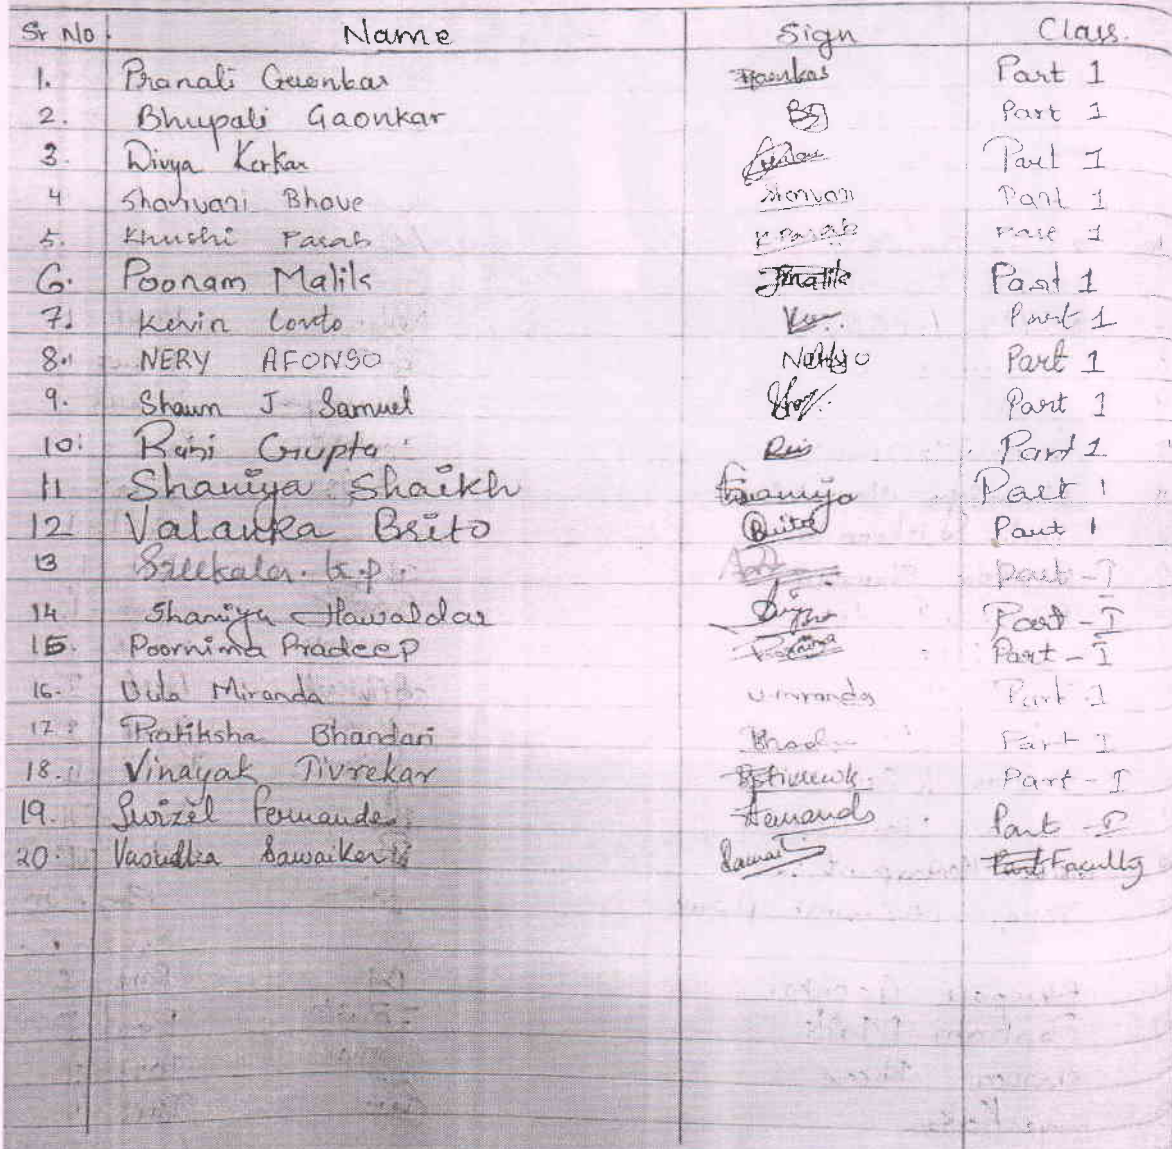 Sr No Name Sign Class.
1. Pranali Gaonkar Gaonkar Part 1
2. Bhupali Gaonkar BG Part 1
3. Divya Kerkar Part 1
4 Sharvari Bhave Sharvari Part 1
5. Khushi Parab K Parab Part 1
6. Poonam Malik Pmalik Part 1
7. Kevin Couto Part 1
8. NERY AFONSO Part 1
9. Shaun J Samuel Part 1
10. Gupta Part 1
11 Shaniya Shaikh Shaniya Part 1
12 Valanka Brito Brito Part 1
13 Sreekala. K.p Part - I
14 Shaniya Hawaldar Part - I
15. Poornima Pradeep Poornima Part - I
16. Miranda Part - I
17. Pratiksha Bhandari Part I
18. Vinayak Tivrekar Part - I
19. Swizel Fernandes Fernands Part - I
20. Vasudha Sawaikar Sawai Faculty